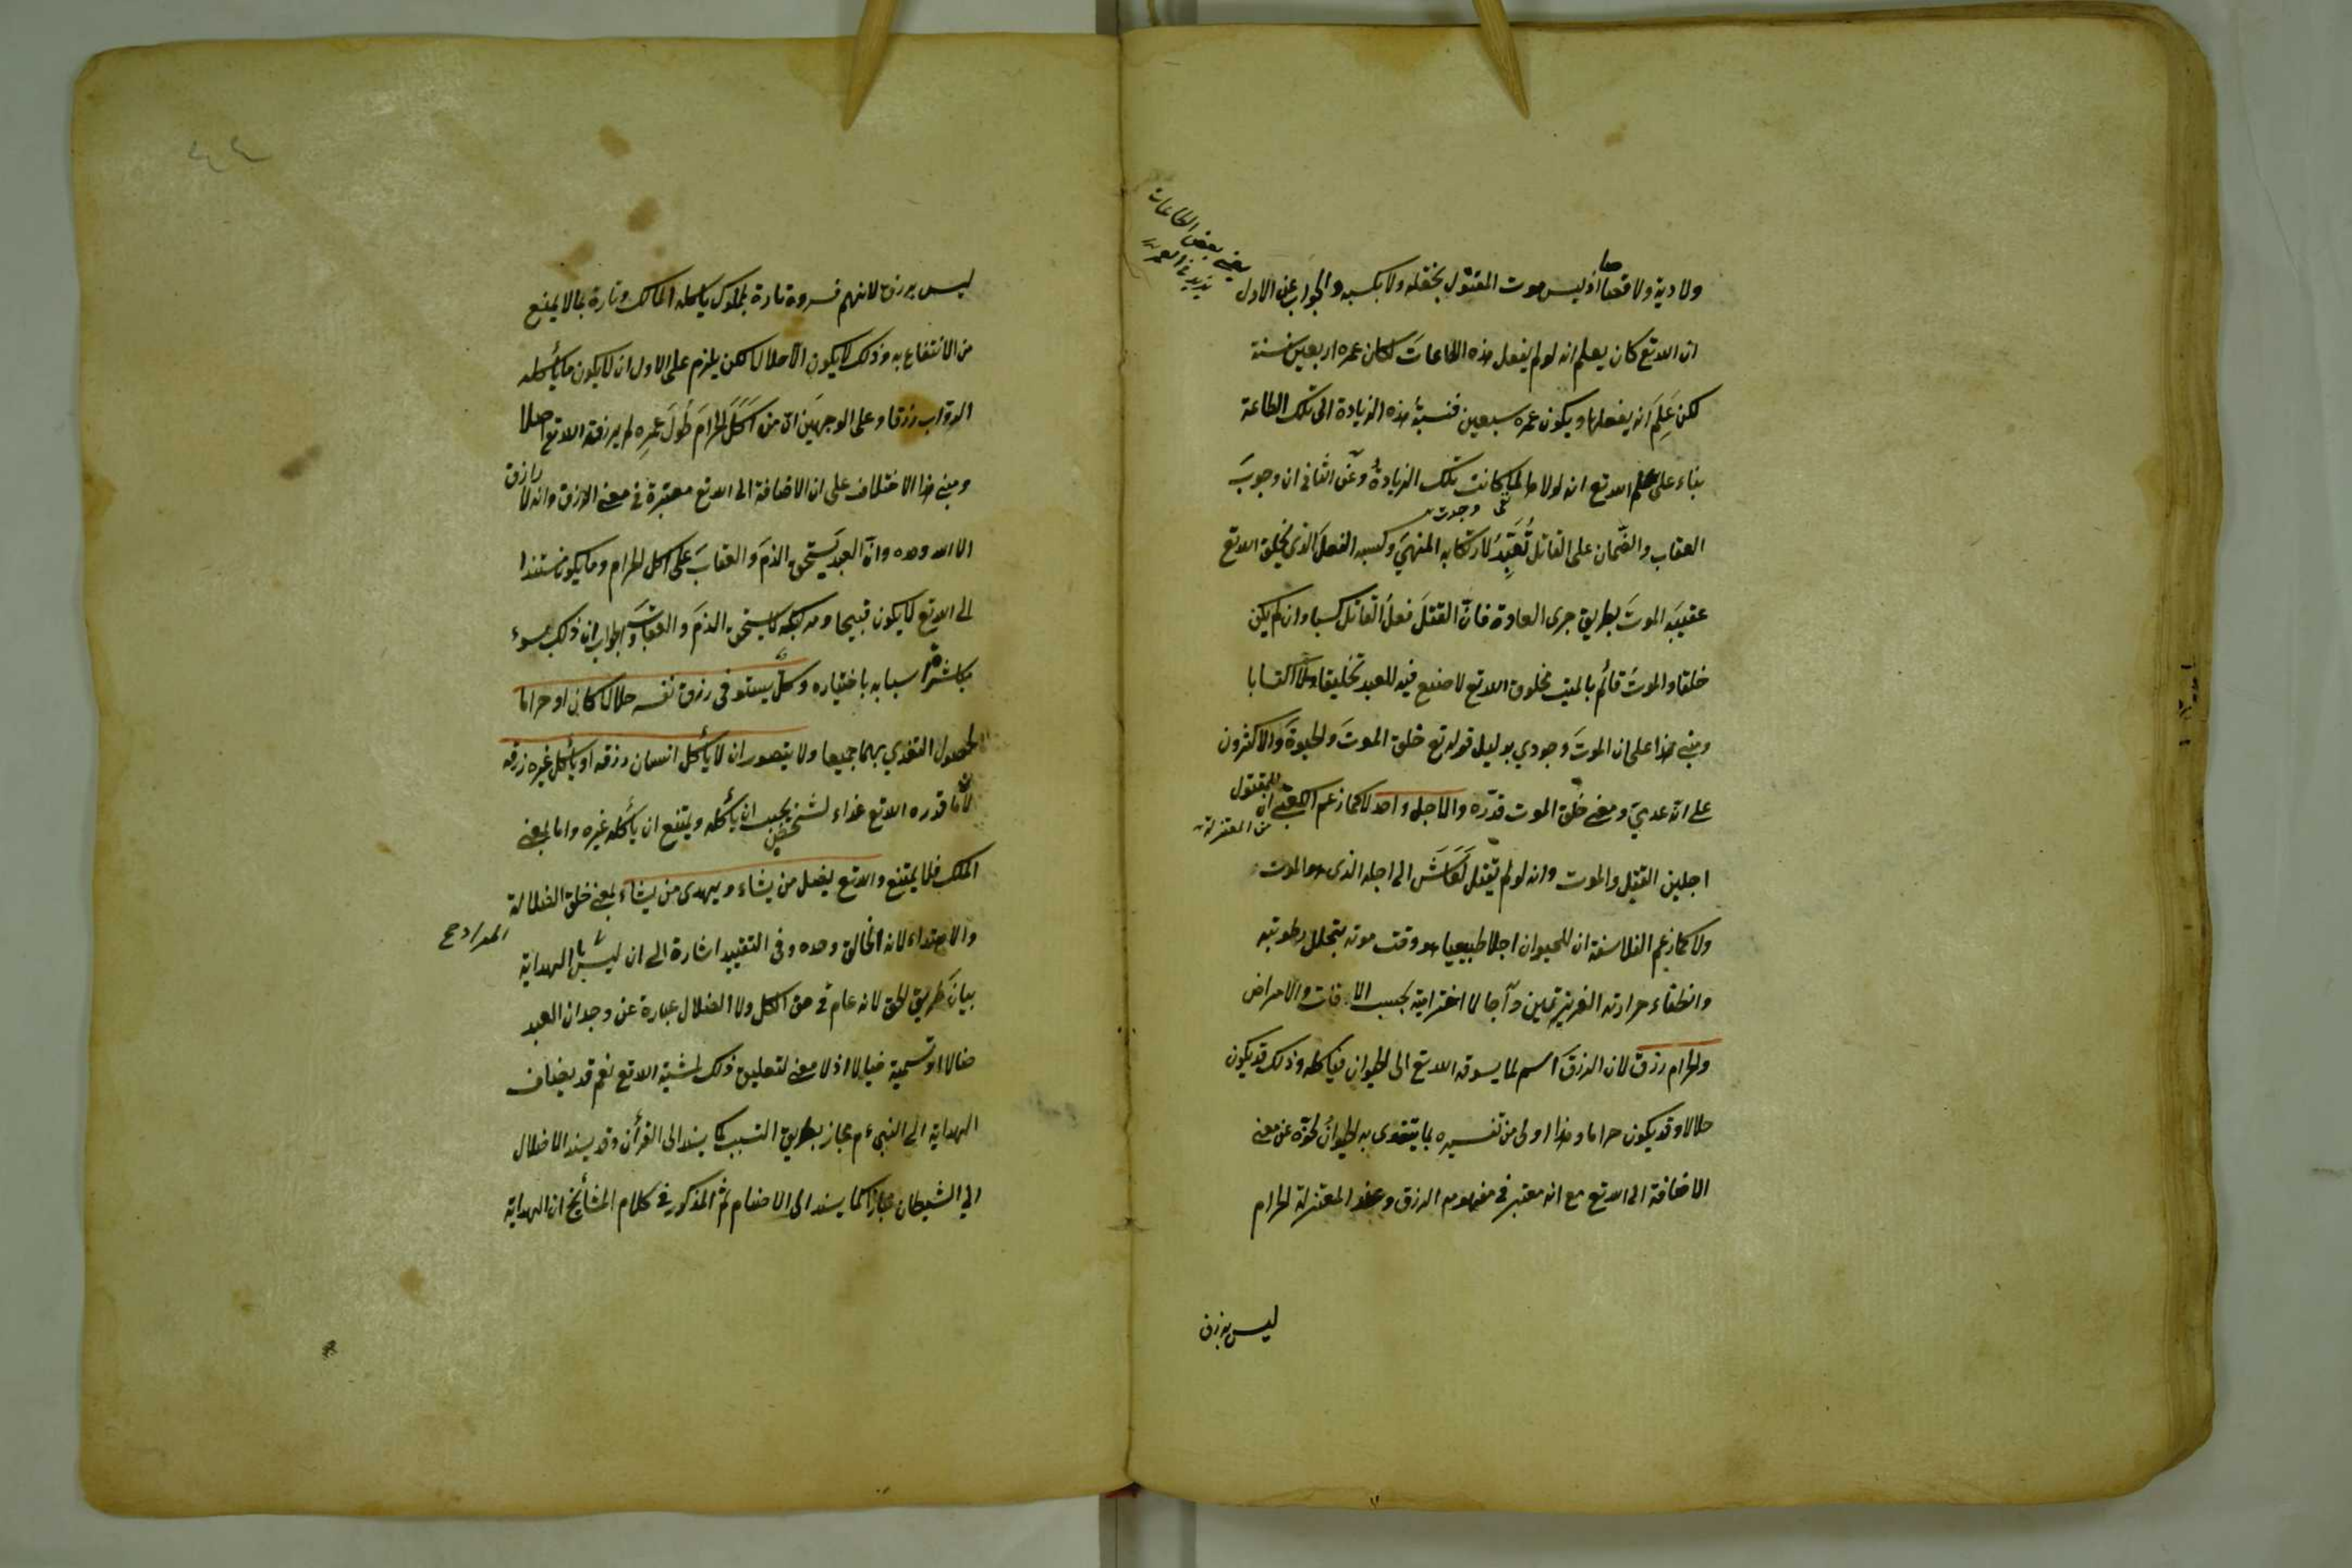 ولا دية ولا قصاصا اذ ليس موت المقتول بخلقه ولا بكسبه والجواب عن الاول
ان الله تع كان يعلم انه لو لم يفعل هذه الطاعات لكان عمره اربعين سنة
لكن علم انه يفعلها ويكون عمره سبعين فنسبة هذه الزيادة الى تلك الطاعة
بناء على علم الله تع انه لولاها لما كانت تلك الزيادة وعن الثانى ان وجوب
العقاب والضمان على القاتل تعبد لارتكابه المنهى وكسبه الفعل الذى يخلق الله تع
عقيبه الموت بطريق جرى العادة فان القتل فعل القاتل كسبا وان لم يكن
خلقا والموت قائم بالميت مخلوق الله تع لا صنع فيه للعبد تخليقا ولا اكتسابا
ومبنى هذا على ان الموت وجودي بدليل قوله تع خلق الموت والحيوة والاكثرون
على انه عدمي ومعنى خلق الموت قدره والاجل واحد لا كما زعم الكعبى ان للمقتول
من المعتزلة
اجلين القتل والموت وانه لو لم يقتل لعاش الى اجله الذى هو الموت
ولا كما زعم الفلاسفة ان للحيوان اجلا طبيعيا هو وقت موته بتحلل رطوبته
وانطفاء حرارته الغريزيتين وآجالا اخترامية بحسب الافات والامراض
والحرام رزق لان الرزق اسم لما يسوقه الله تع الى الحيوان فيأكله وذلك قد يكون
حلالا وقد يكون حراما وهذا اولى من تفسيره بما يتغذى به الحيوان لخلوه عن معنى
الاضافة الى الله تع مع انه معتبر فى مفهوم الرزق وعند المعتزلة الحرام
ليس برزق
يعنى بعض الطاعات
يزيد فى العمر
ليس برزق لانهم فسروه تارة بمملوك يأكله المالك وتارة بما لا يمنع
من الانتفاع به وذلك لا يكون الا حلالا لكن يلزم على الاول ان لا يكون ما يأكله
الدواب رزقا وعلى الوجهين ان من اكل الحرام طول عمره لم يرزقه الله تع اصلا
ومبنى هذا الاختلاف على ان الاضافة الى الله تع معتبرة فى معنى الرزق وانه لا رازق
الا الله وحده وان العبد يستحق الذم والعقاب على اكل الحرام وما يكون مستندا
الى الله تع لا يكون قبيحا ومرتكبه لا يستحق الذم والعقاب والجواب ان ذلك لسوء
مباشرة اسبابه باختياره وكل يستوفى رزق نفسه حلالا كان او حراما
لحصول التغذي بهما جميعا ولا يتصور ان لا يأكل انسان رزقه او يأكل غيره رزقه
لان ما قدره الله تع غذاء لشخص يجب ان يأكله ويمتنع ان يأكله غيره واما بمعنى
الملك فلا يمتنع والله تع يضل من يشاء ويهدى من يشاء بمعنى خلق الضلالة
والاهتداء لانه الخالق وحده وفى التقييد اشارة الى ان ليس المراد بالهداية
بيان طريق الحق لانه عام فى حق الكل ولا الضلال عبارة عن وجدان العبد
ضالا او تسمية ضالا اذ لا معنى لتعليق ذلك بمشية الله تع نعم قد يضاف
الهداية الى النبى ءم مجاز بطريق التسبب كما يسند الى القرأن وقد يسند الاضلال
الي الشيطان مجازا كما يسند الى الاصنام ثم المذكور فى كلام المشايخ ان الهداية